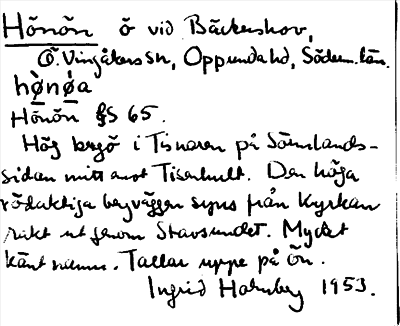 Hönön ö vid Bäckershov,
Ö. Vingåkers sn, Oppunda hd, Söderm. län.
hònǿa
Hönön GS 65.
Hög bergö i Tisnaren på Sörmlands-
sidan mitt emot Tisenhult. Den höga
rödaktiga bergväggen syns från Kyrkan
rakt ut genom Stavsundet. Mycket
känt namn. Tallar uppe på ön.
Ingrid Holmberg 1953.